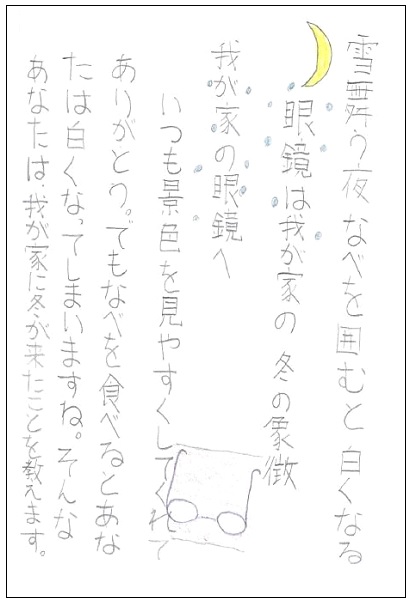 雪舞う夜 なべを囲むと 白くなる
眼鏡は我が家の 冬の象徴
我が家の眼鏡へ
いつも景色を見やすくしてくれて
ありがとう。でもなべを食べるとあな
たは白くなってしまいますね。そんな
あなたは、我が家に冬が来たことを教えます。